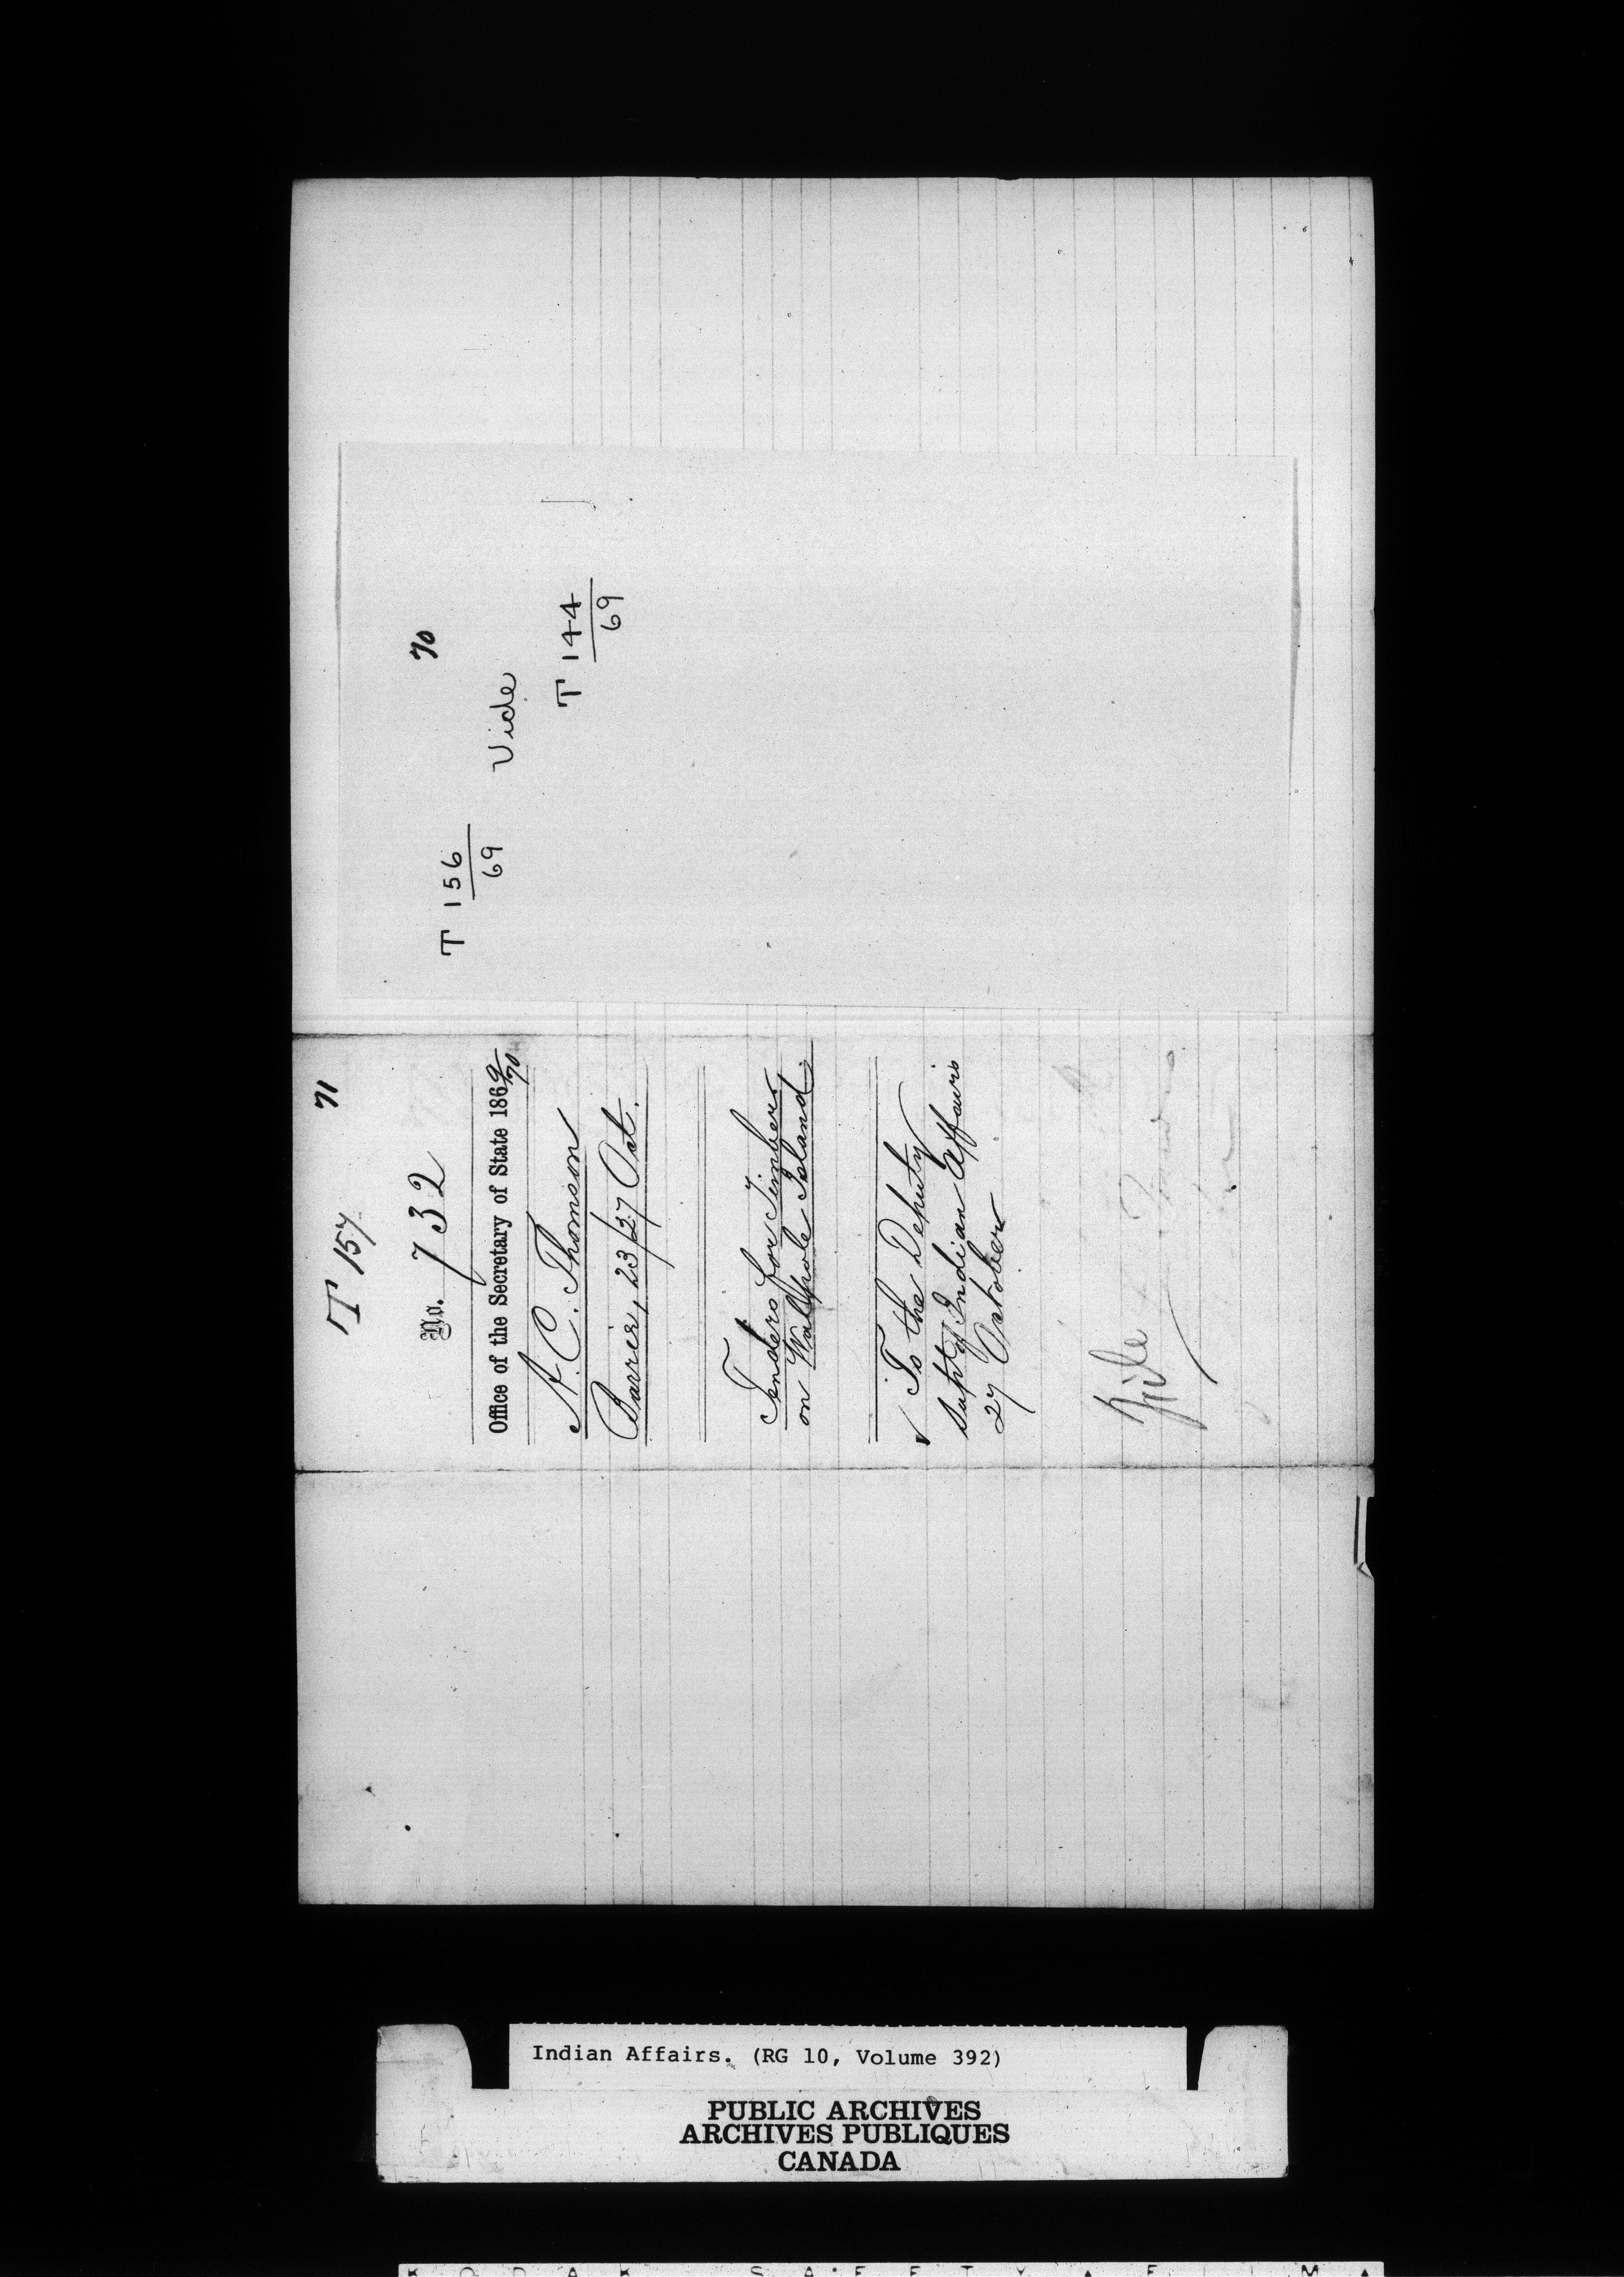 70
T 156
69
Vide
T 144
69
71
T 157
No. 732
Office of the Secretary of State 1869/70
A. C. Thomson
Barrie, 23/27 Oct.
Tenders for Timber
on Walpole Island.
✓ To the Deputy
Supt of Indian Affairs
27 October
File
Indian Affairs. (RG 10, Volume 392)
PUBLIC ARCHIVES
ARCHIVES PUBLIQUES
CANADA